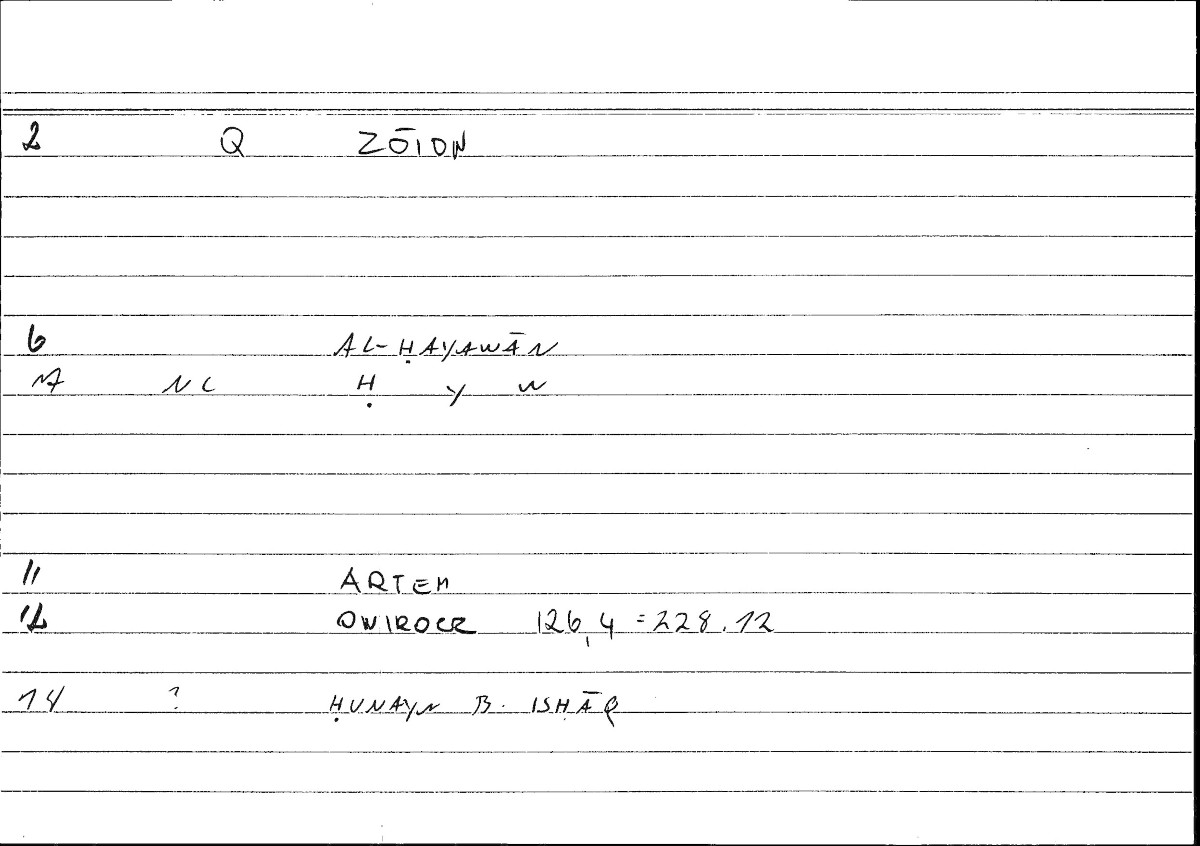 2 Q ZŌION
6 AL-ḤAYAWĀN
7 NC Ḥ Y W
11 ARTEM
12 ONIROCR 126,4 = 228.12
14 ? ḤUNAYN B. ISḤĀQ